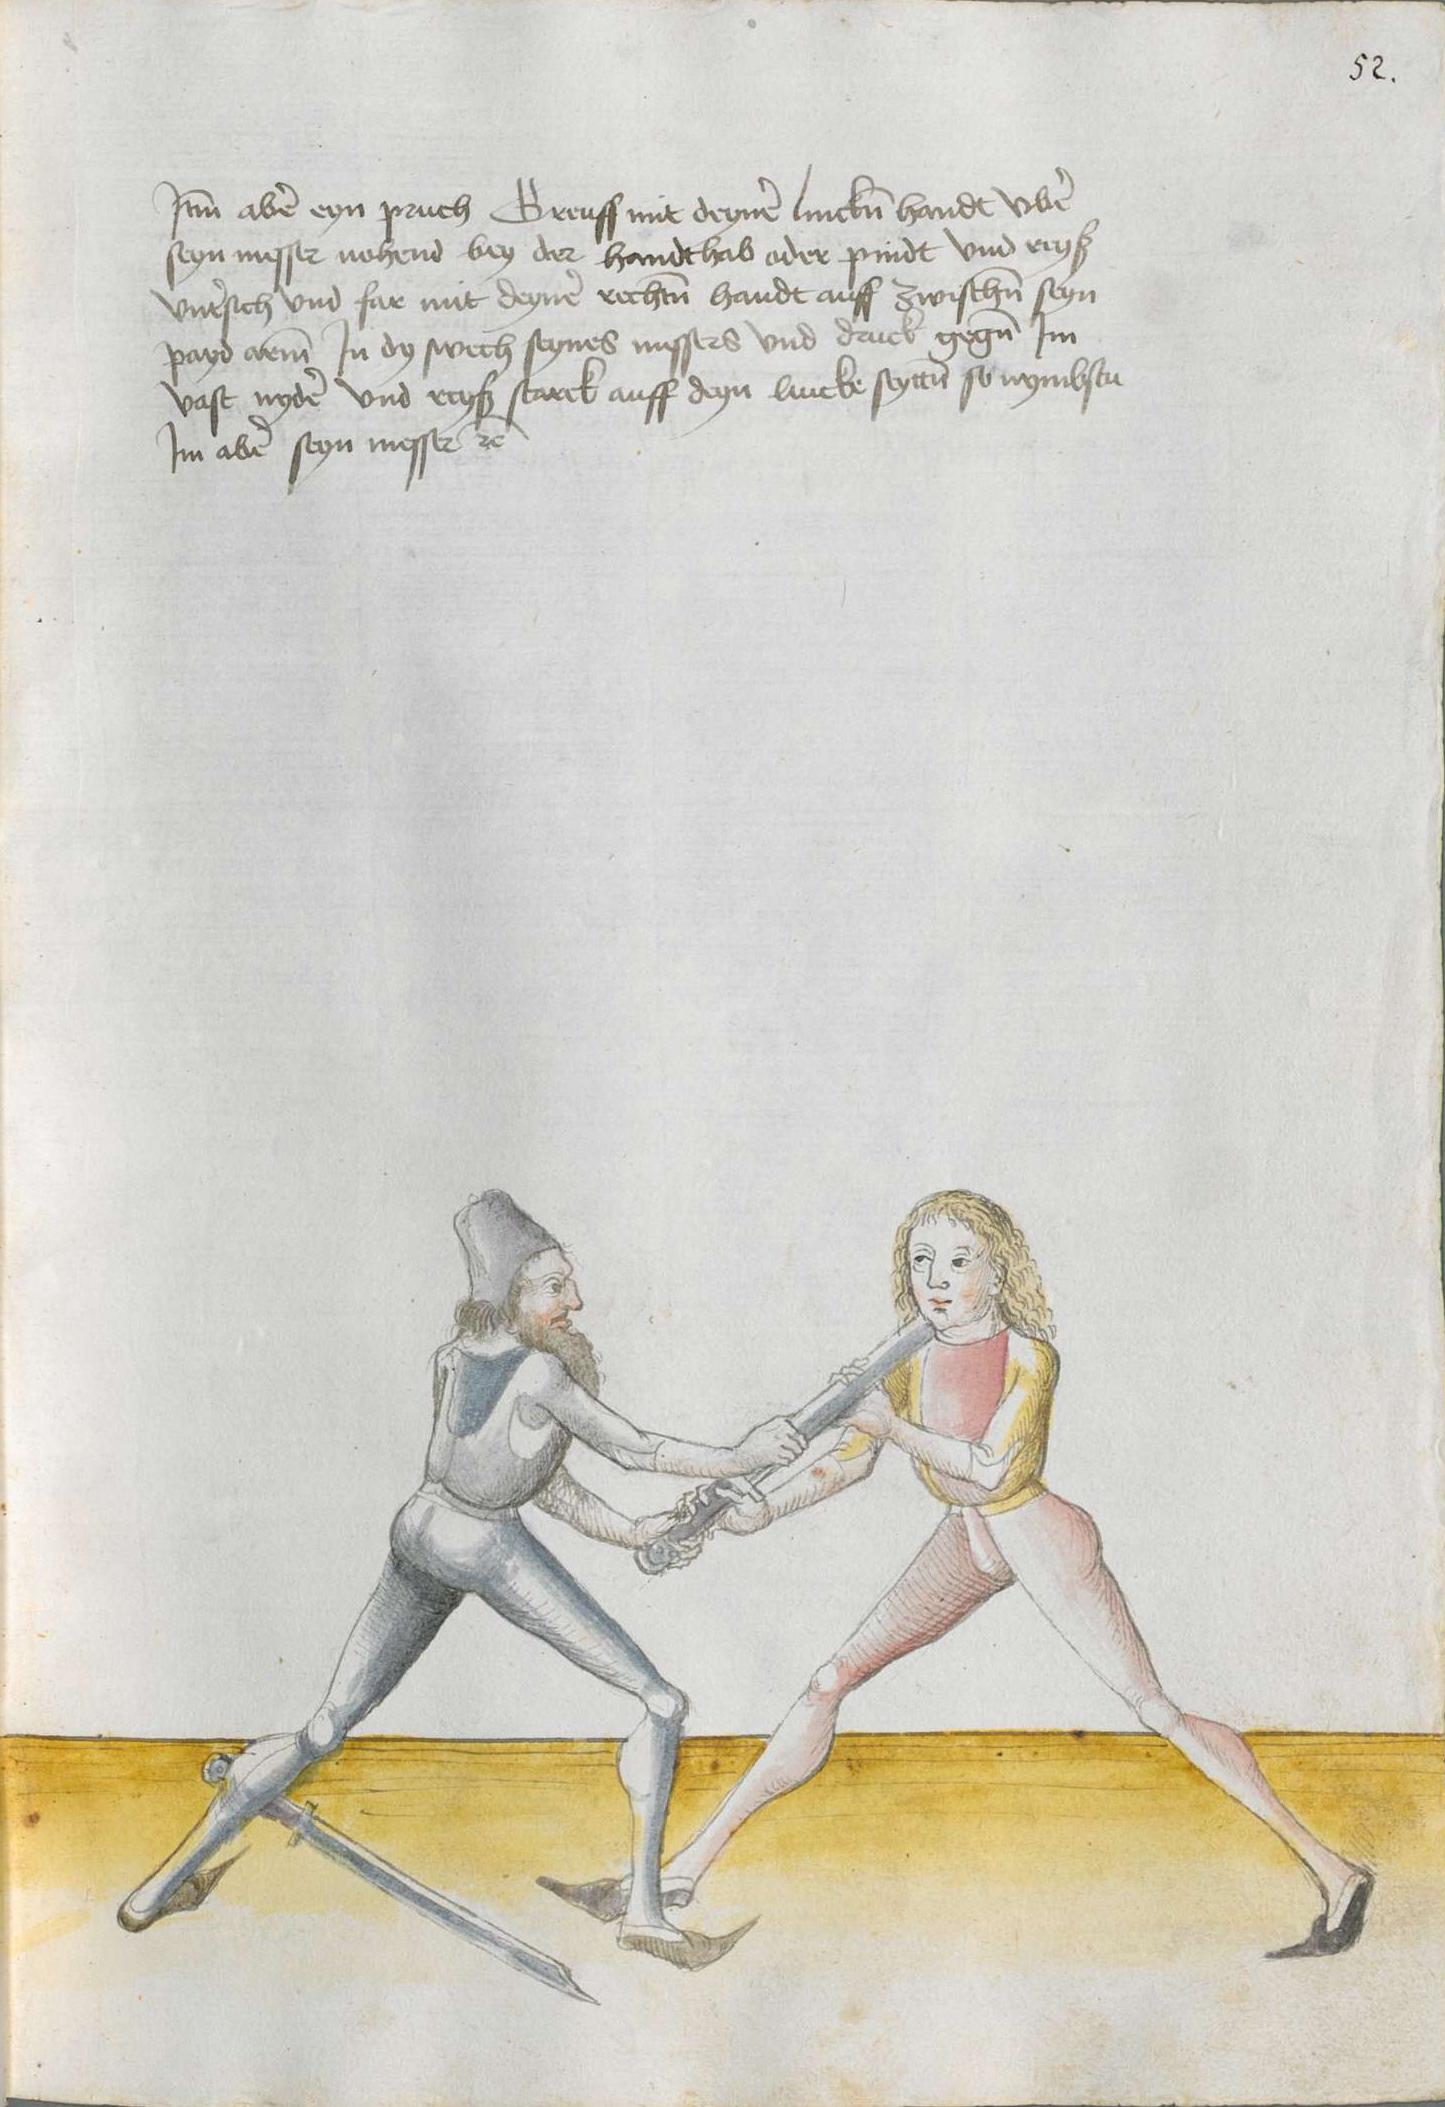 52.
Itm̃ abẽ eyn pruch Greuff mit deynẽ linckñ handt vbẽ
seyn messer nohend bey der handthab oder pindt vnd reyß
vnt̃sich vnd far mit deynẽ rechtñ handt auff zwischñ seyn
payd arem̃ In dy swech seynes messers vnd druck gegñ Im
vast nydẽ vnd reyß starck auff deyn lincke seyttñ so nymbstu
Im abẽ seyn messer